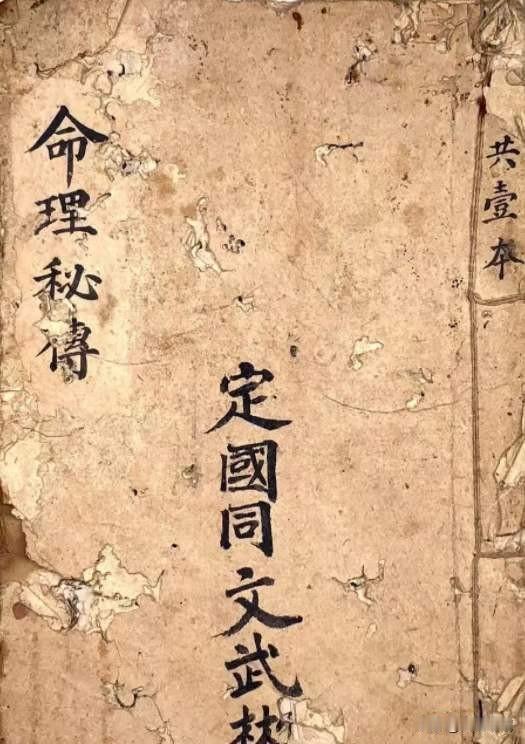 共壹本
定國同文武
命理秘傳